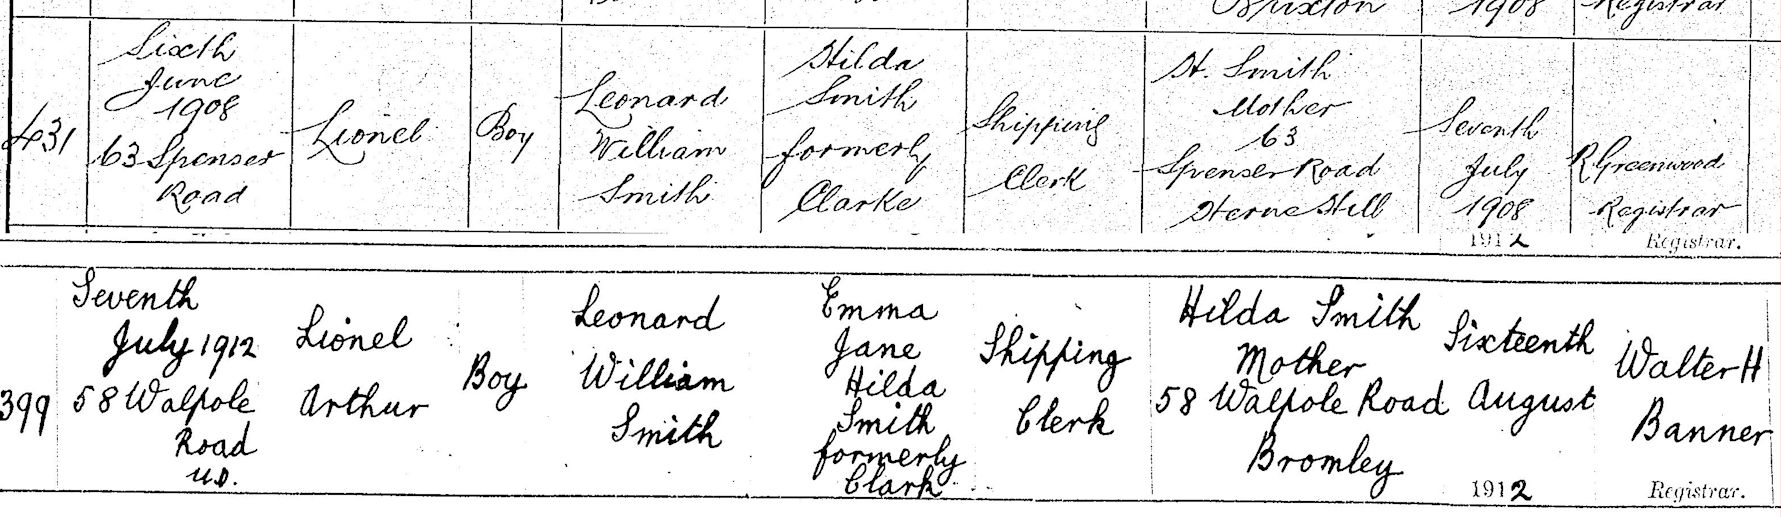 Brixton
1908
Registrar
431
Sixth
June
1908
63 Spenser
Road
Lionel
Boy
Leonard
William
Smith
Hilda
Smith
formerly
Clarke
Shipping
Clerk
H. Smith
Mother
63
Spenser Road
Herne Hill
Seventh
July
1908
R. Greenwood
Registrar
1912
Registrar.
399
Seventh
July 1912
58 Walpole
Road
U.D.
Lionel
Arthur
Boy
Leonard
William
Smith
Emma
Jane
Hilda
Smith
formerly
Clark
Shipping
Clerk
Hilda Smith
Mother
58 Walpole Road
Bromley
Sixteenth
August
1912
Walter H
Banner
Registrar.